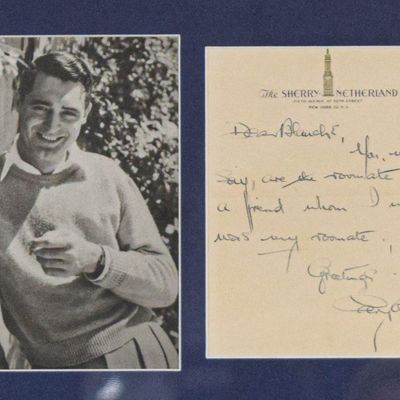 The SHERRY-NETHERLAND
FIFTH AVENUE AT 59TH STREET
NEW YORK 22, N.Y.
Dear Blanche,
You,
say, are the roomate
a friend whom I
was my roomate.
Greetings